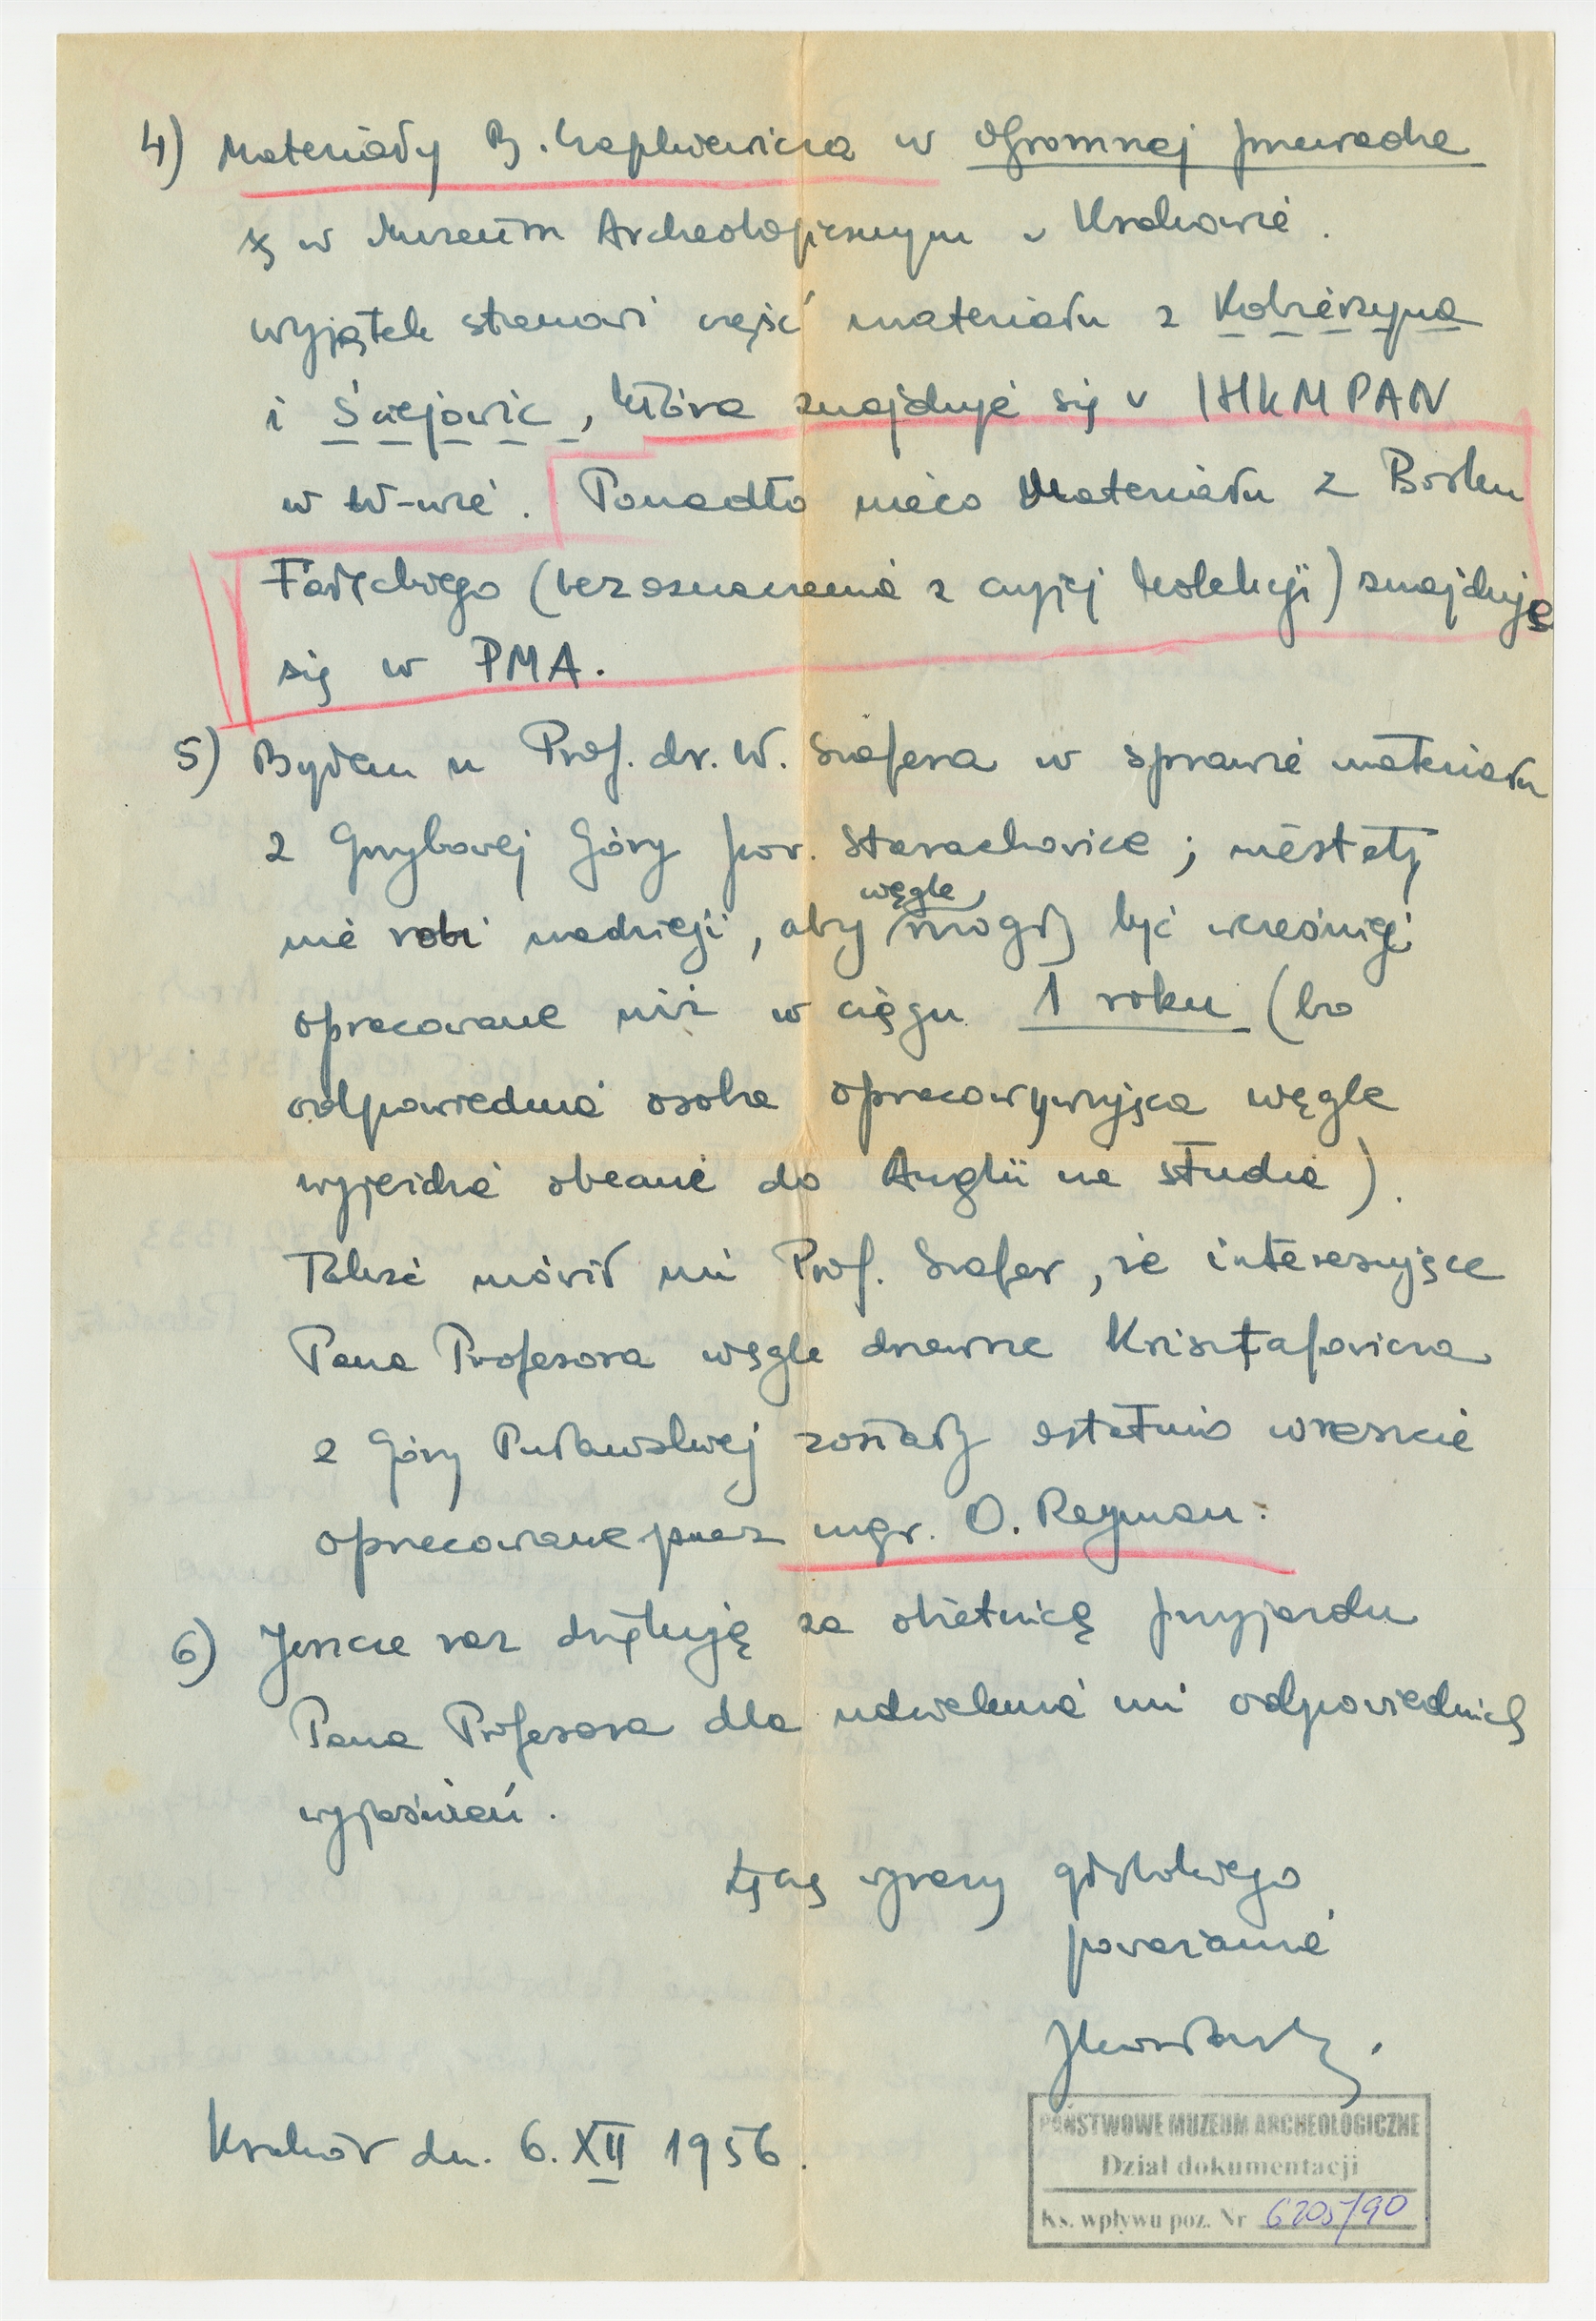 4) Materiały B. Czapkiewicza w ogromnej przewadze
są w Muzeum Archeologicznym w Krakowie.
Wyjątek stanowi część materiału z Kobierzyna
i Ściejowic, która znajduje się w IHKM PAN
w W-wie. Ponadto nieco Materiału z Borku
Fałęckiego (bez oznaczenia z czyjej kolekcji) znajduje
się w PMA.
5) Byłem u Prof. dr. W. Szafera w sprawie materiału
z Grzybowej Góry pow. Starachowice; niestety
nie robi nadzieji, aby węgle mogły być wcześniej
opracowane niż w ciągu 1 roku (bo
odpowiednia osoba opracowywująca węgle
wyjeżdża obecnie do Anglii na studia).
Także mówił mi Prof. Szafer, że interesujące
Pana Profesora węgle drzewne Krisztafowicza
z Góry Puławskiej zostały ostatnio wreszcie
opracowane przez mgr. O. Reyman.
6) Jeszcze raz dziękuję za obietnicę przyjazdu
Pana Profesora dla udzielenia mi odpowiednich
wyjaśnień.
Łączę wyrazy głębokiego
poważania
Kraków dn. 6. XII 1956.
PAŃSTWOWE MUZEUM ARCHEOLOGICZNE
Dział dokumentacji
Ks. wpływu poz. Nr 6205/90